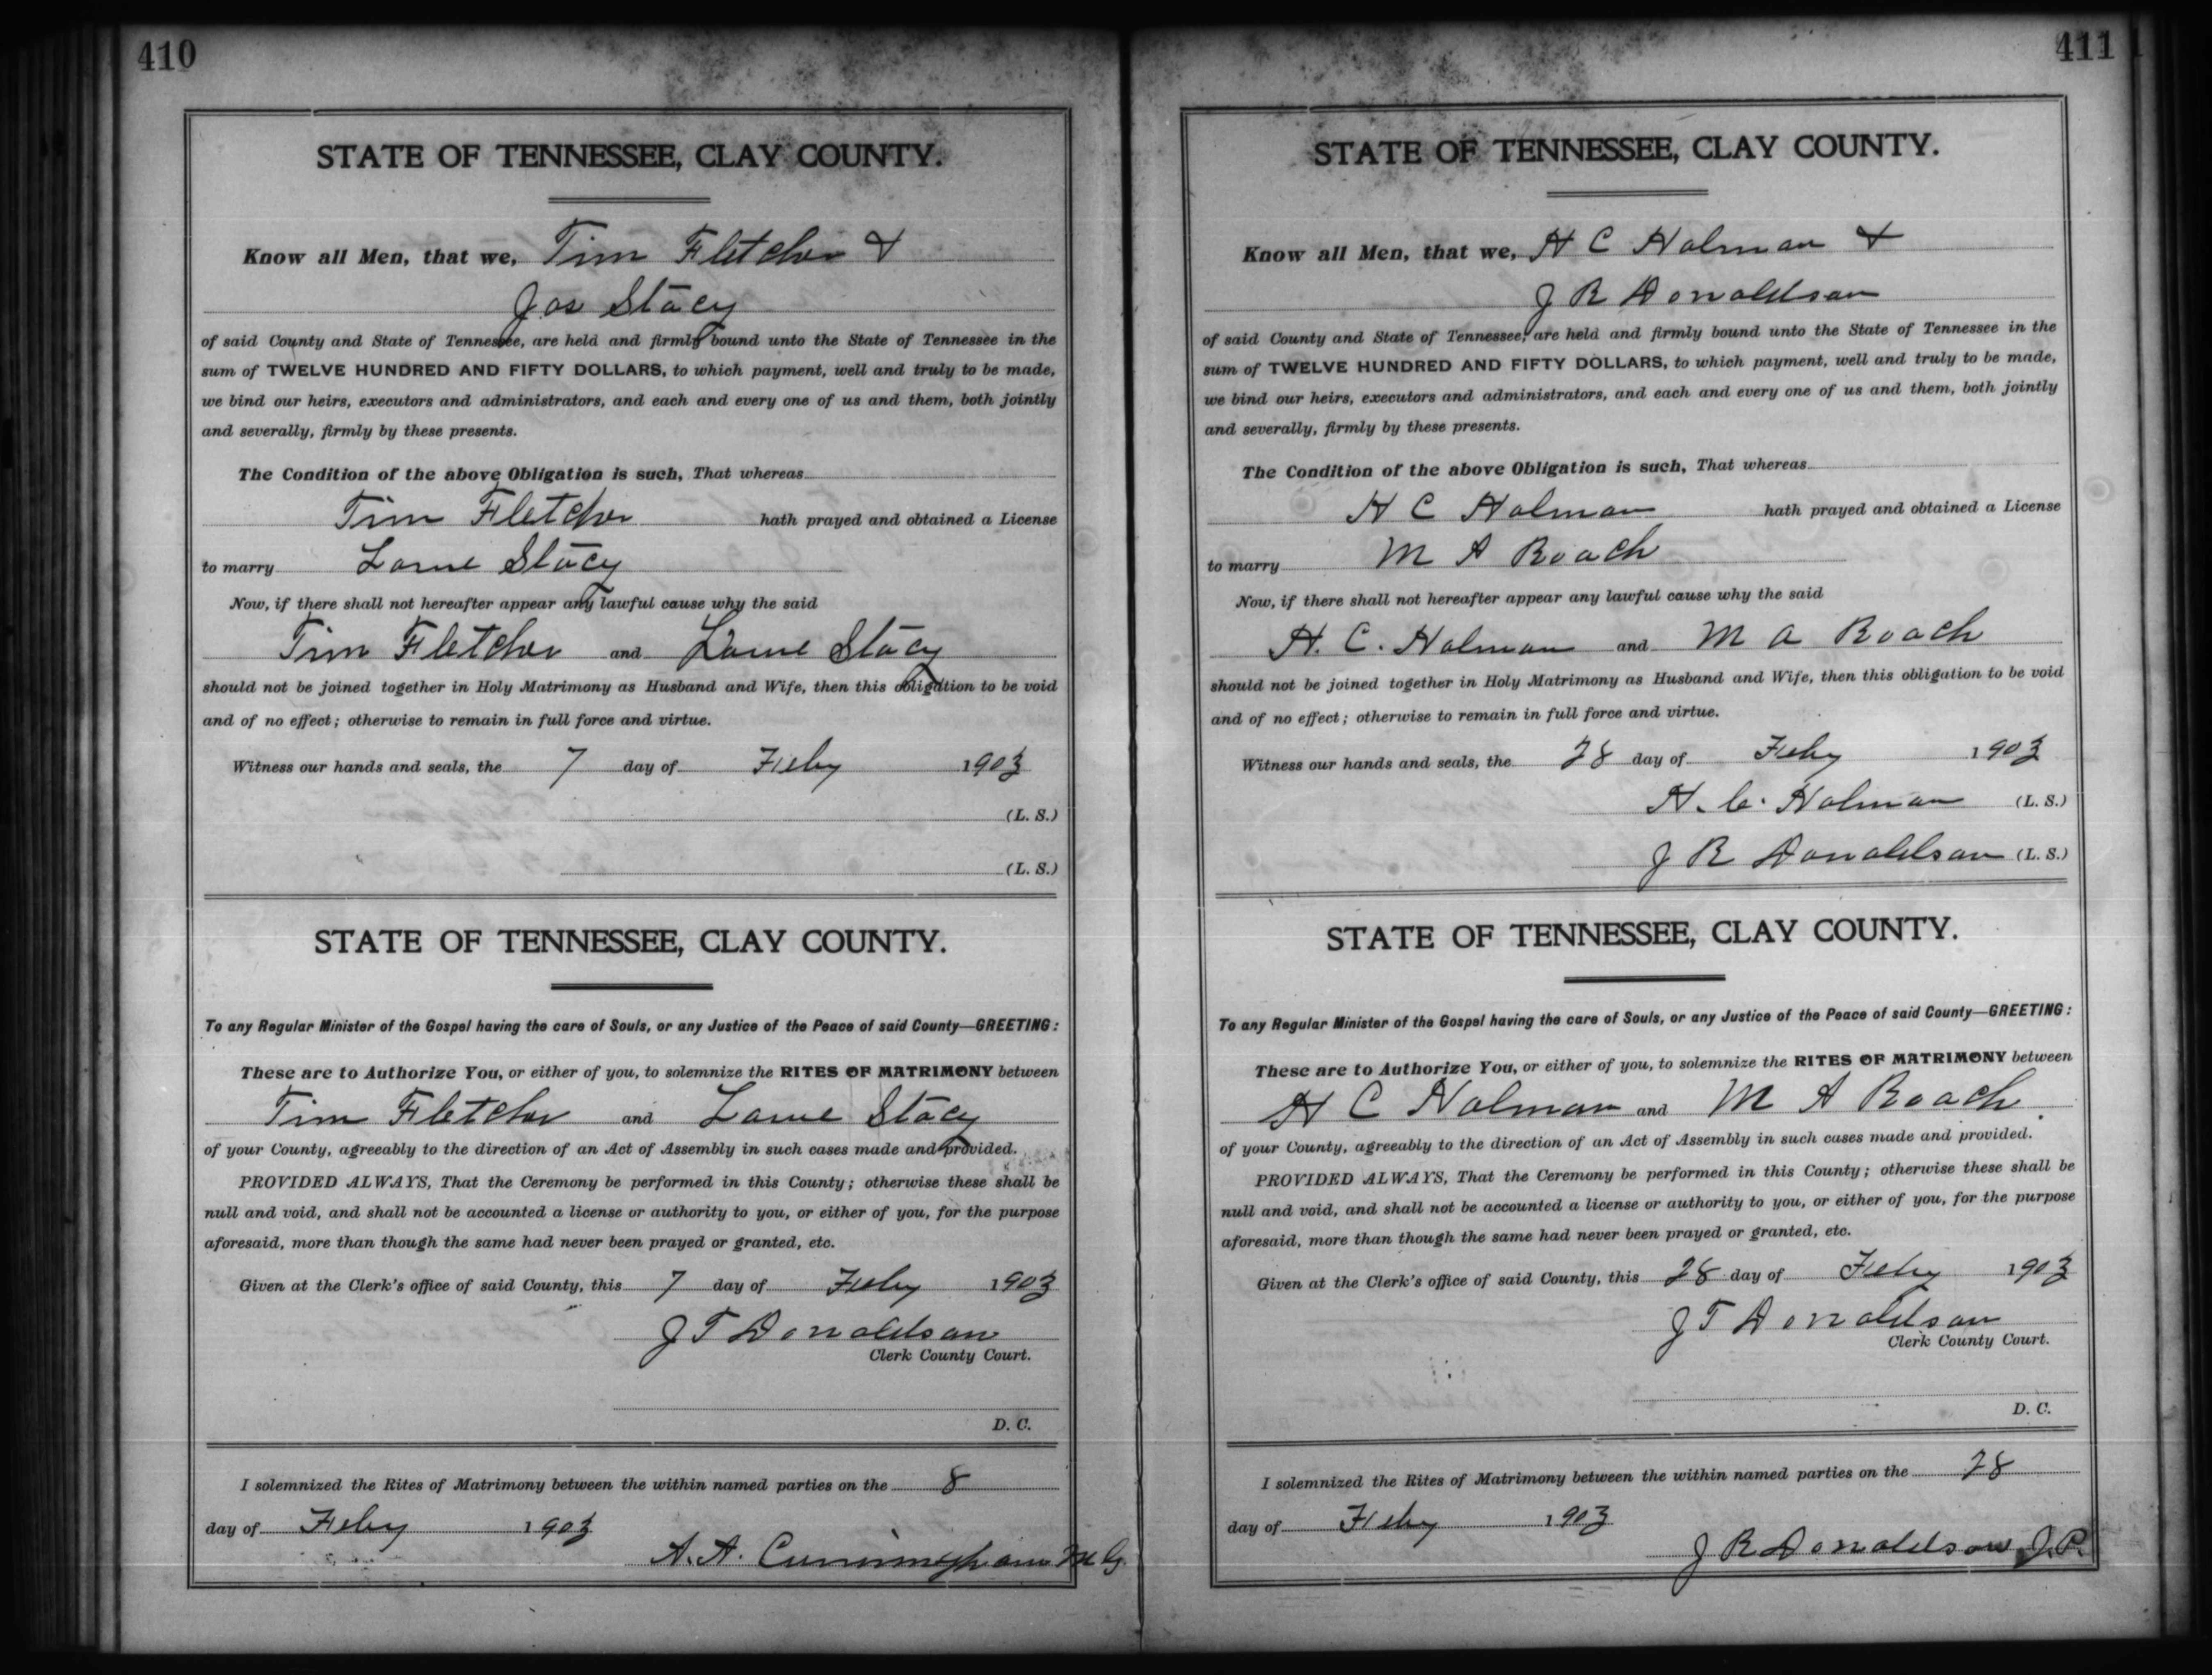 410
STATE OF TENNESSEE, CLAY COUNTY.
Know all Men, that we, Tim Fletcher &
Jos Stacy
of said County and State of Tennessee, are held and firmly bound unto the State of Tennessee in the
sum of TWELVE HUNDRED AND FIFTY DOLLARS, to which payment, well and truly to be made,
we bind our heirs, executors and administrators, and each and every one of us and them, both jointly
and severally, firmly by these presents.
The Condition of the above Obligation is such, That whereas
Tim Fletcher hath prayed and obtained a License
to marry Stacy
Now, if there shall not hereafter appear any lawful cause why the said
Tim Fletcher and Stacy
should not be joined together in Holy Matrimony as Husband and Wife, then this obligation to be void
and of no effect; otherwise to remain in full force and virtue.
Witness our hands and seals, the 7 day of Feby 1903
(L. S.)
(L. S.)
STATE OF TENNESSEE, CLAY COUNTY.
To any Regular Minister of the Gospel having the care of Souls, or any Justice of the Peace of said County—GREETING:
These are to Authorize You, or either of you, to solemnize the RITES OF MATRIMONY between
Tim Fletcher and Stacy
of your County, agreeably to the direction of an Act of Assembly in such cases made and provided.
PROVIDED ALWAYS, That the Ceremony be performed in this County; otherwise these shall be
null and void, and shall not be accounted a license or authority to you, or either of you, for the purpose
aforesaid, more than though the same had never been prayed or granted, etc.
Given at the Clerk's office of said County, this 7 day of Feby 1903
J T Donaldson
Clerk County Court.
D. C.
I solemnized the Rites of Matrimony between the within named parties on the 8
day of Feby 1903
A. A. Cunningham M G.
411
STATE OF TENNESSEE, CLAY COUNTY.
Know all Men, that we, H C Holman &
J R Donaldson
of said County and State of Tennessee, are held and firmly bound unto the State of Tennessee in the
sum of TWELVE HUNDRED AND FIFTY DOLLARS, to which payment, well and truly to be made,
we bind our heirs, executors and administrators, and each and every one of us and them, both jointly
and severally, firmly by these presents.
The Condition of the above Obligation is such, That whereas
H C Holman hath prayed and obtained a License
to marry M A Roach
Now, if there shall not hereafter appear any lawful cause why the said
H. C. Holman and M A Roach
should not be joined together in Holy Matrimony as Husband and Wife, then this obligation to be void
and of no effect; otherwise to remain in full force and virtue.
Witness our hands and seals, the 28 day of Feby 1903
H. C. Holman (L. S.)
J R Donaldson (L. S.)
STATE OF TENNESSEE, CLAY COUNTY.
To any Regular Minister of the Gospel having the care of Souls, or any Justice of the Peace of said County—GREETING:
These are to Authorize You, or either of you, to solemnize the RITES OF MATRIMONY between
H C Holman and M A Roach
of your County, agreeably to the direction of an Act of Assembly in such cases made and provided.
PROVIDED ALWAYS, That the Ceremony be performed in this County; otherwise these shall be
null and void, and shall not be accounted a license or authority to you, or either of you, for the purpose
aforesaid, more than though the same had never been prayed or granted, etc.
Given at the Clerk's office of said County, this 28 day of Feby 1903
J T Donaldson
Clerk County Court.
D. C.
I solemnized the Rites of Matrimony between the within named parties on the 28
day of Feby 1903
J R Donaldson J. P.